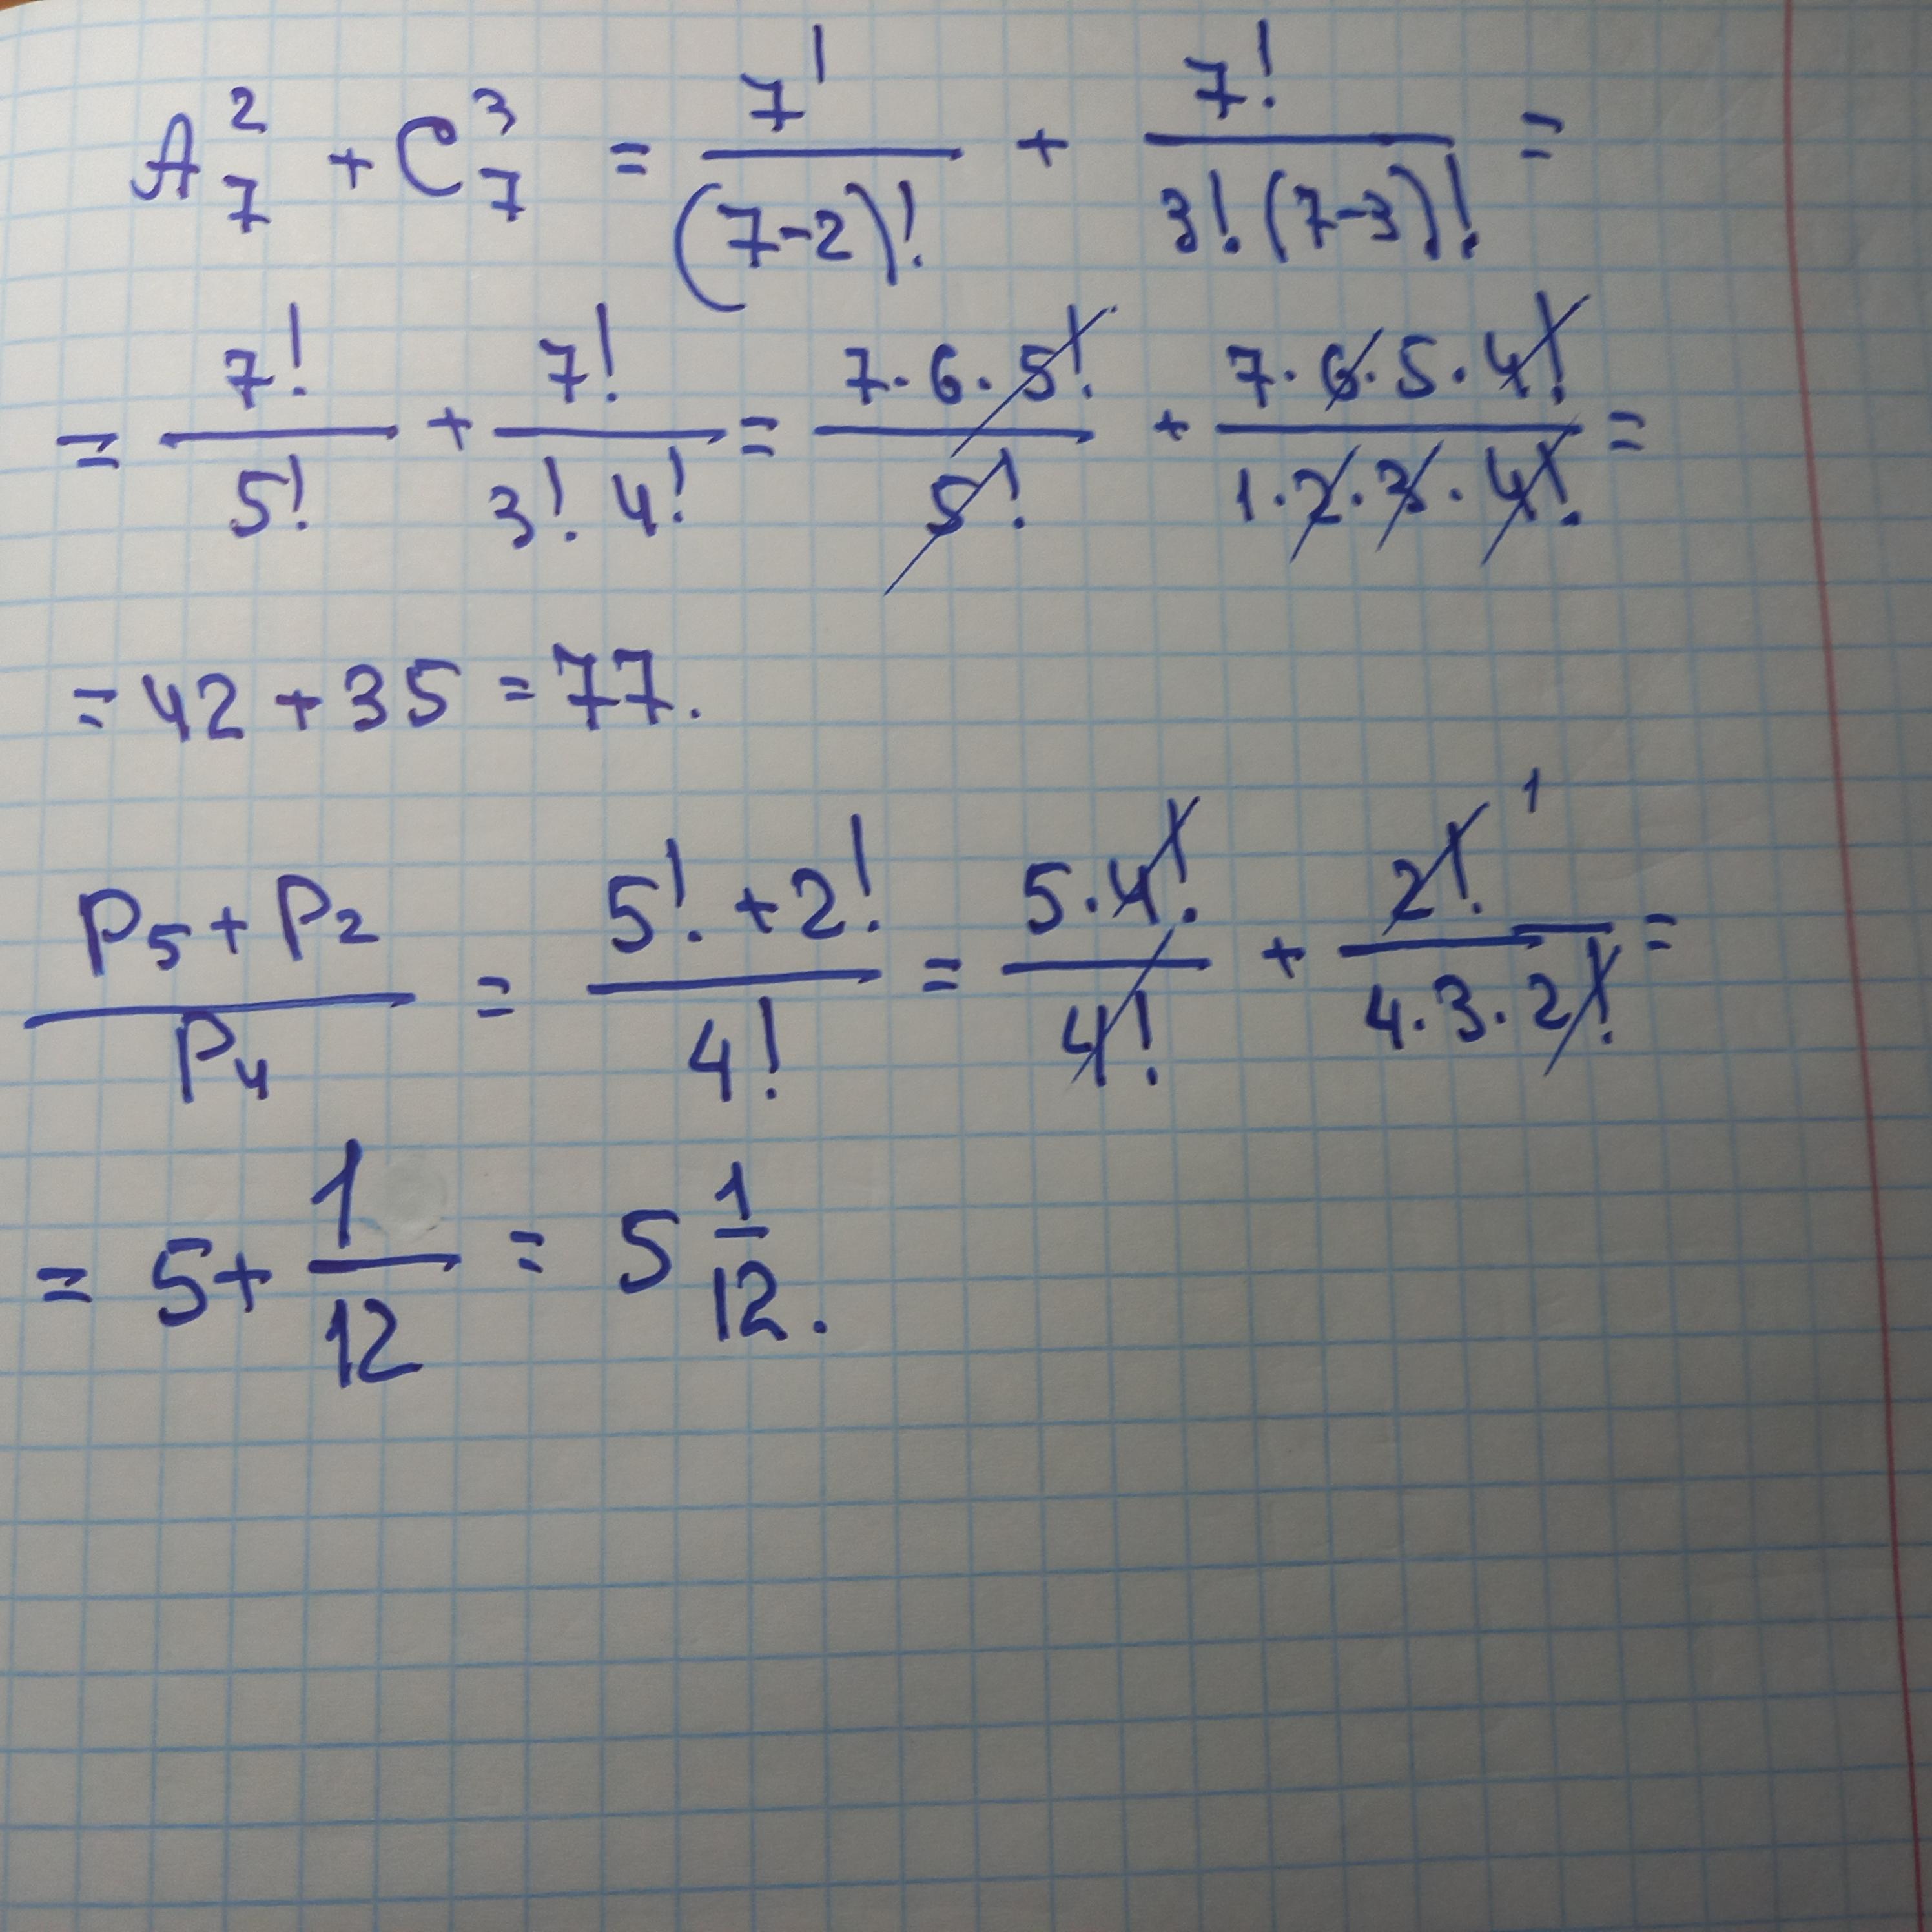 A₇² + C₇³ = 7! / (7-2)! + 7! / 3!(7-3)! =
= 7! / 5! + 7! / 3! 4! = 7·6·5! / 5! + 7·6·5·4! / 1·2·3·4! =
= 42 + 35 = 77.
P₅ + P₂ / P₄ = 5! + 2! / 4! = 5·4! / 4! + 2! 1 / 4·3·2! =
= 5 + 1 / 12 = 5 1/12.